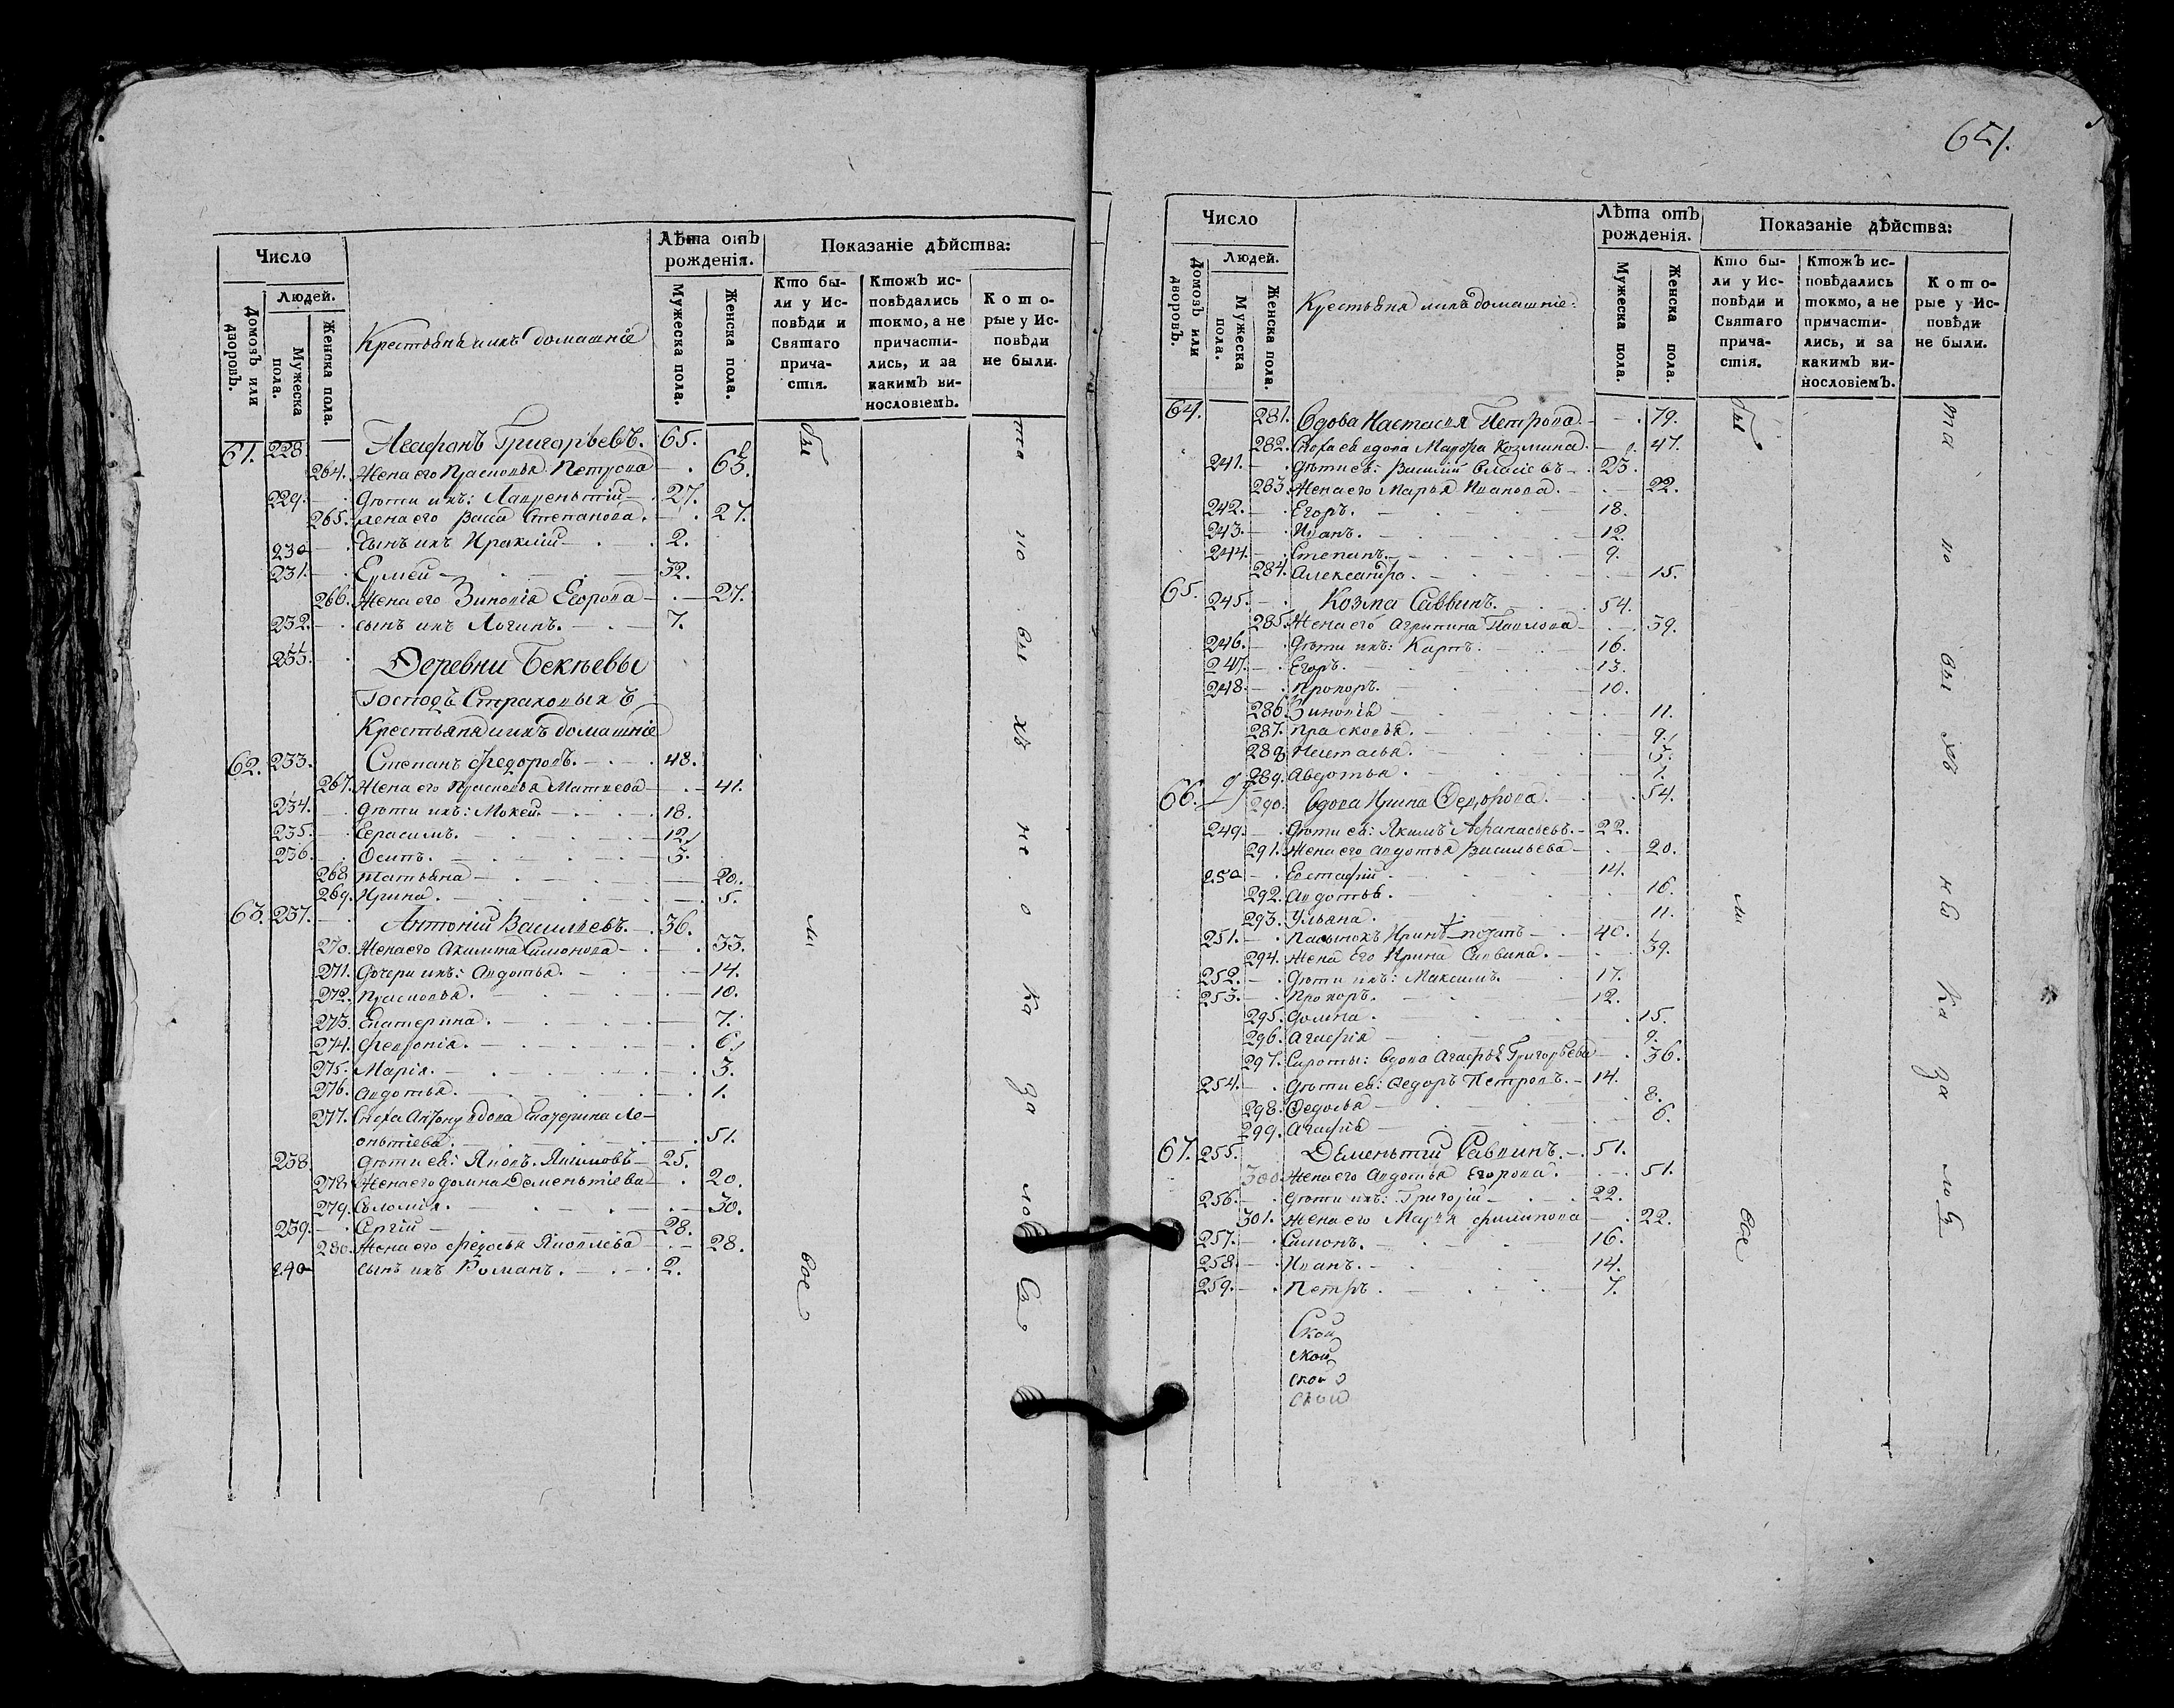 Число
Людей.
Домовъ или дворовъ.
Мужеска пола.
Женска пола.
Крестьяня и ихъ домашнiе
Лѣта отъ рожденiя.
Мужеска пола.
Женска пола.
Показанiе дѣйства:
Кто были у Исповѣди и Святаго причастiя.
Ктожъ исповѣдались токмо, а не причастились, и за какимъ винословiемъ.
Которые у Исповѣди не были.
61. 228. Агафонъ Григорьевъ. 65.
264. Жена его Прасковья Петрова 63.
229. Дѣти ихъ: Лаврентiй 27.
265. жена его Васса Степанова. 27.
230 Сынъ ихъ Ираклiй 2.
231. Ермей 32.
266. Жена его Зиновiя Егорова 27.
232. сынъ ихъ Логинъ. 7.
233. Деревни Бекѣевы
Господъ Страховыхъ
Крестьяня и ихъ домашнiе
62. 233. Степанъ Федоровъ. 48.
267. Жена его Прасковья Матвеева 41.
234. Дѣти ихъ: Мокей. 18.
235. Герасимъ. 12.
236. Осипъ. 3.
268 Татьяна 20.
269. Ирина. 5.
63. 237. Антонiй Васильевъ. 36.
270. Жена его Акилина Симонова 33.
271. Дочери ихъ: Авдотья. 14.
272. Прасковья. 10.
273. Екатерина. 7.
274. Феврония. 6.
275. Марiя. 3.
276. Авдотья. 1.
277. Сноха Антону вдова Екатерина Ле-
онтiева. 51.
238. Дѣти ея: Яковъ Якимовъ 25.
278. Жена его Домна Дементiева 20.
279. Соломiя. 30.
239. Сергiй 28.
280. Жена его Федосья Яковлева 28.
240 сынъ ихъ Романъ. 2.
бы
ли
вое
та
ко
вы
хъ
не
о
ка
за
ло
Сь
651.
Число
Людей.
Домовъ или дворовъ.
Мужеска пола.
Женска пола.
Крестьяня и ихъ домашнiе:
Лѣта отъ рожденiя.
Мужеска пола.
Женска пола.
Показанiе дѣйства:
Кто были у Исповѣди и Святаго причастiя.
Ктожъ исповѣдались токмо, а не причастились, и за какимъ винословiемъ.
Которые у Исповѣди не были.
64. 281. Вдова Настасья Петрова 79.
282. Сноха ея вдова Марфа Козмина. 47.
241. Дѣти ея: Василiй 23.
283. Жена его Марья Иванова. 22.
242. Егоръ. 18.
243. Иванъ. 12.
244. Степанъ. 9.
284. Александра. 15.
65. 245. Козма Саввинъ. 54.
285. Жена его Агрипина Павлова 39.
246. Дѣти ихъ: Карпъ. 16.
247. Егоръ. 13.
248. Прохоръ. 10.
286. Зиновiя 11.
287. Прасковья. 9.
288 Настасья. 3.
289. Авдотья. 1.
66. 290. Вдова Ирина Федорова. 54.
249. Дѣти ея: Якимъ Афанасьевъ. 22.
291. Жена его Авдотья Васильева 20.
250 Евстафiй 14.
292. Авдотья. 16.
293. Ульяна. 11.
251. Пасынокъ Ирины 40.
294. Жена Его Ирина Саввина. 39.
252. Дѣти ихъ: Максимъ. 17.
253. Прохоръ. 12.
295. Домна. 15.
296. Агафiя 9.
297. Сироты: Вдова Агафья Григорьева 36.
254. Дѣти ея: Федоръ Петровъ. 14.
298. Федосья 8.
299. Агафiя 6.
67. 255. Дементiй Саввинъ. 51.
300 Жена его Авдотья Егорова. 51.
256. Дѣти ихъ: Григорiй 22.
301. Жена его Марья Филипова 22.
257. Симонъ. 16.
258. Иванъ. 14.
259. Петръ. 7.
Ской
ской
ской
ской
бы
ли
вое
та
ко
вы
хъ
не
ка
за
ло